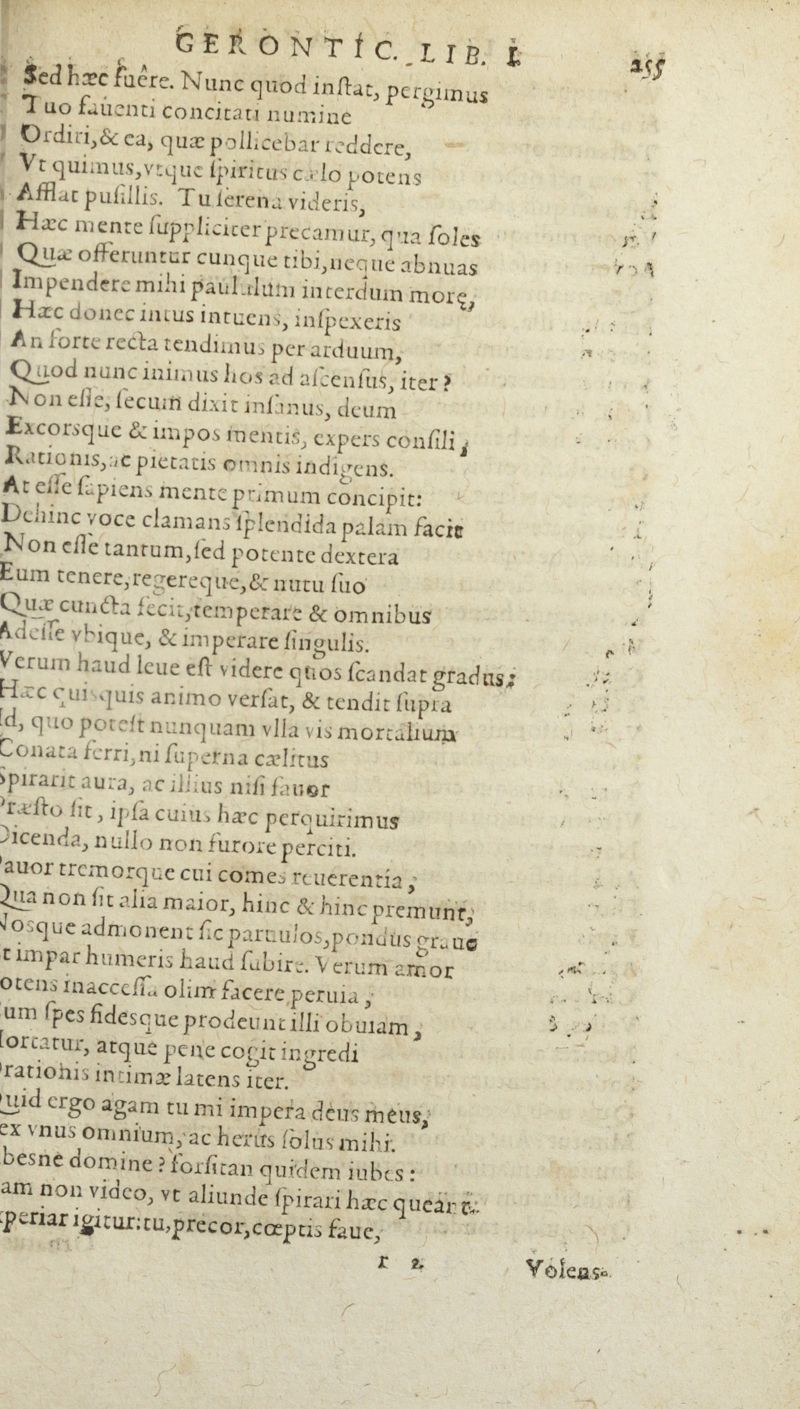 GERONTIC. LIB. I 255
Sed hæc fuêre. Nunc quod inſtat, pergimus
Tuo fauenti concitati numine
Ordiri,& ea, quæ pollicebar reddere,
Vt quimus,vtque ſpiritus cælo potens
Afflat puſillis. Tu ſerena videris,
Hæc mente ſuppliciter precamur, qua ſoles
Quæ offeruntur cunque tibi,neque abnuas
Impendere mihi paululùm interdum moræ,
Hæc donec intus intuens, inſpexeris
An forte recta tendimus per arduum,
Quod nunc inimus hos ad aſcenſus, iter?
Non eſſe, ſecum dixit inſanus, deum
Excorsque & impos mentis, expers conſili,
Rationis,ac pietatis omnis indigens.
At eſſe ſapiens mente primum concipit:
Dehinc voce clamans ſplendida palàm facit
Non eſſe tantum,ſed potente dextera
Eum tenere,regereque,& nutu ſuo
Quæ cuncta fecit,temperare & omnibus
Adeſſe vbique, & imperare ſingulis.
Verum haud leue eſt videre quos ſcandat gradus;
Hæc quiſquis animo verſat, & tendit ſupra
Id, quo poteſt nunquam vlla vis mortalium
Conata ferri,ni ſuperna cælitus
Spirarit aura, ac illius niſi fauor
Præſto ſit, ipſa cuius hæc perquirimus
Dicenda, nullo non furore perciti.
Pauor tremorque cui comes reuerentia,
Qua non ſit alia maior, hinc & hinc premunt,
Nosque admonent ſic paruulos,pondus graue
t impar humeris haud ſubire. Verum amor
otens inacceſſa olim facere peruia,
um ſpes fidesque prodeunt illi obuiam,
ortatur, atque pene cogit ingredi
rationis intimæ latens iter.
Quid ergo agam tu mi impera deus meus,
ex vnus omnium, ac herus ſolus mihi.
besne domine? forſitan quidem iubes:
am non video, vt aliunde ſpirari hæc queat
periar igitur: tu,precor,cœptis faue,
r 2 Volens